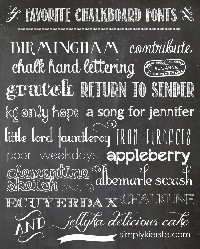 FAVORITE CHALKBOARD FONTS
BIRMINGHAM contribute
chalk hand lettering
grateful RETURN TO SENDER
kg only hope a song for jennifer
little lord fauntleroy
poor weekdays appleberry
clementine sketch albemarle swash
CHALKLINE
AND jellyka delicious cake
simplykierste.com